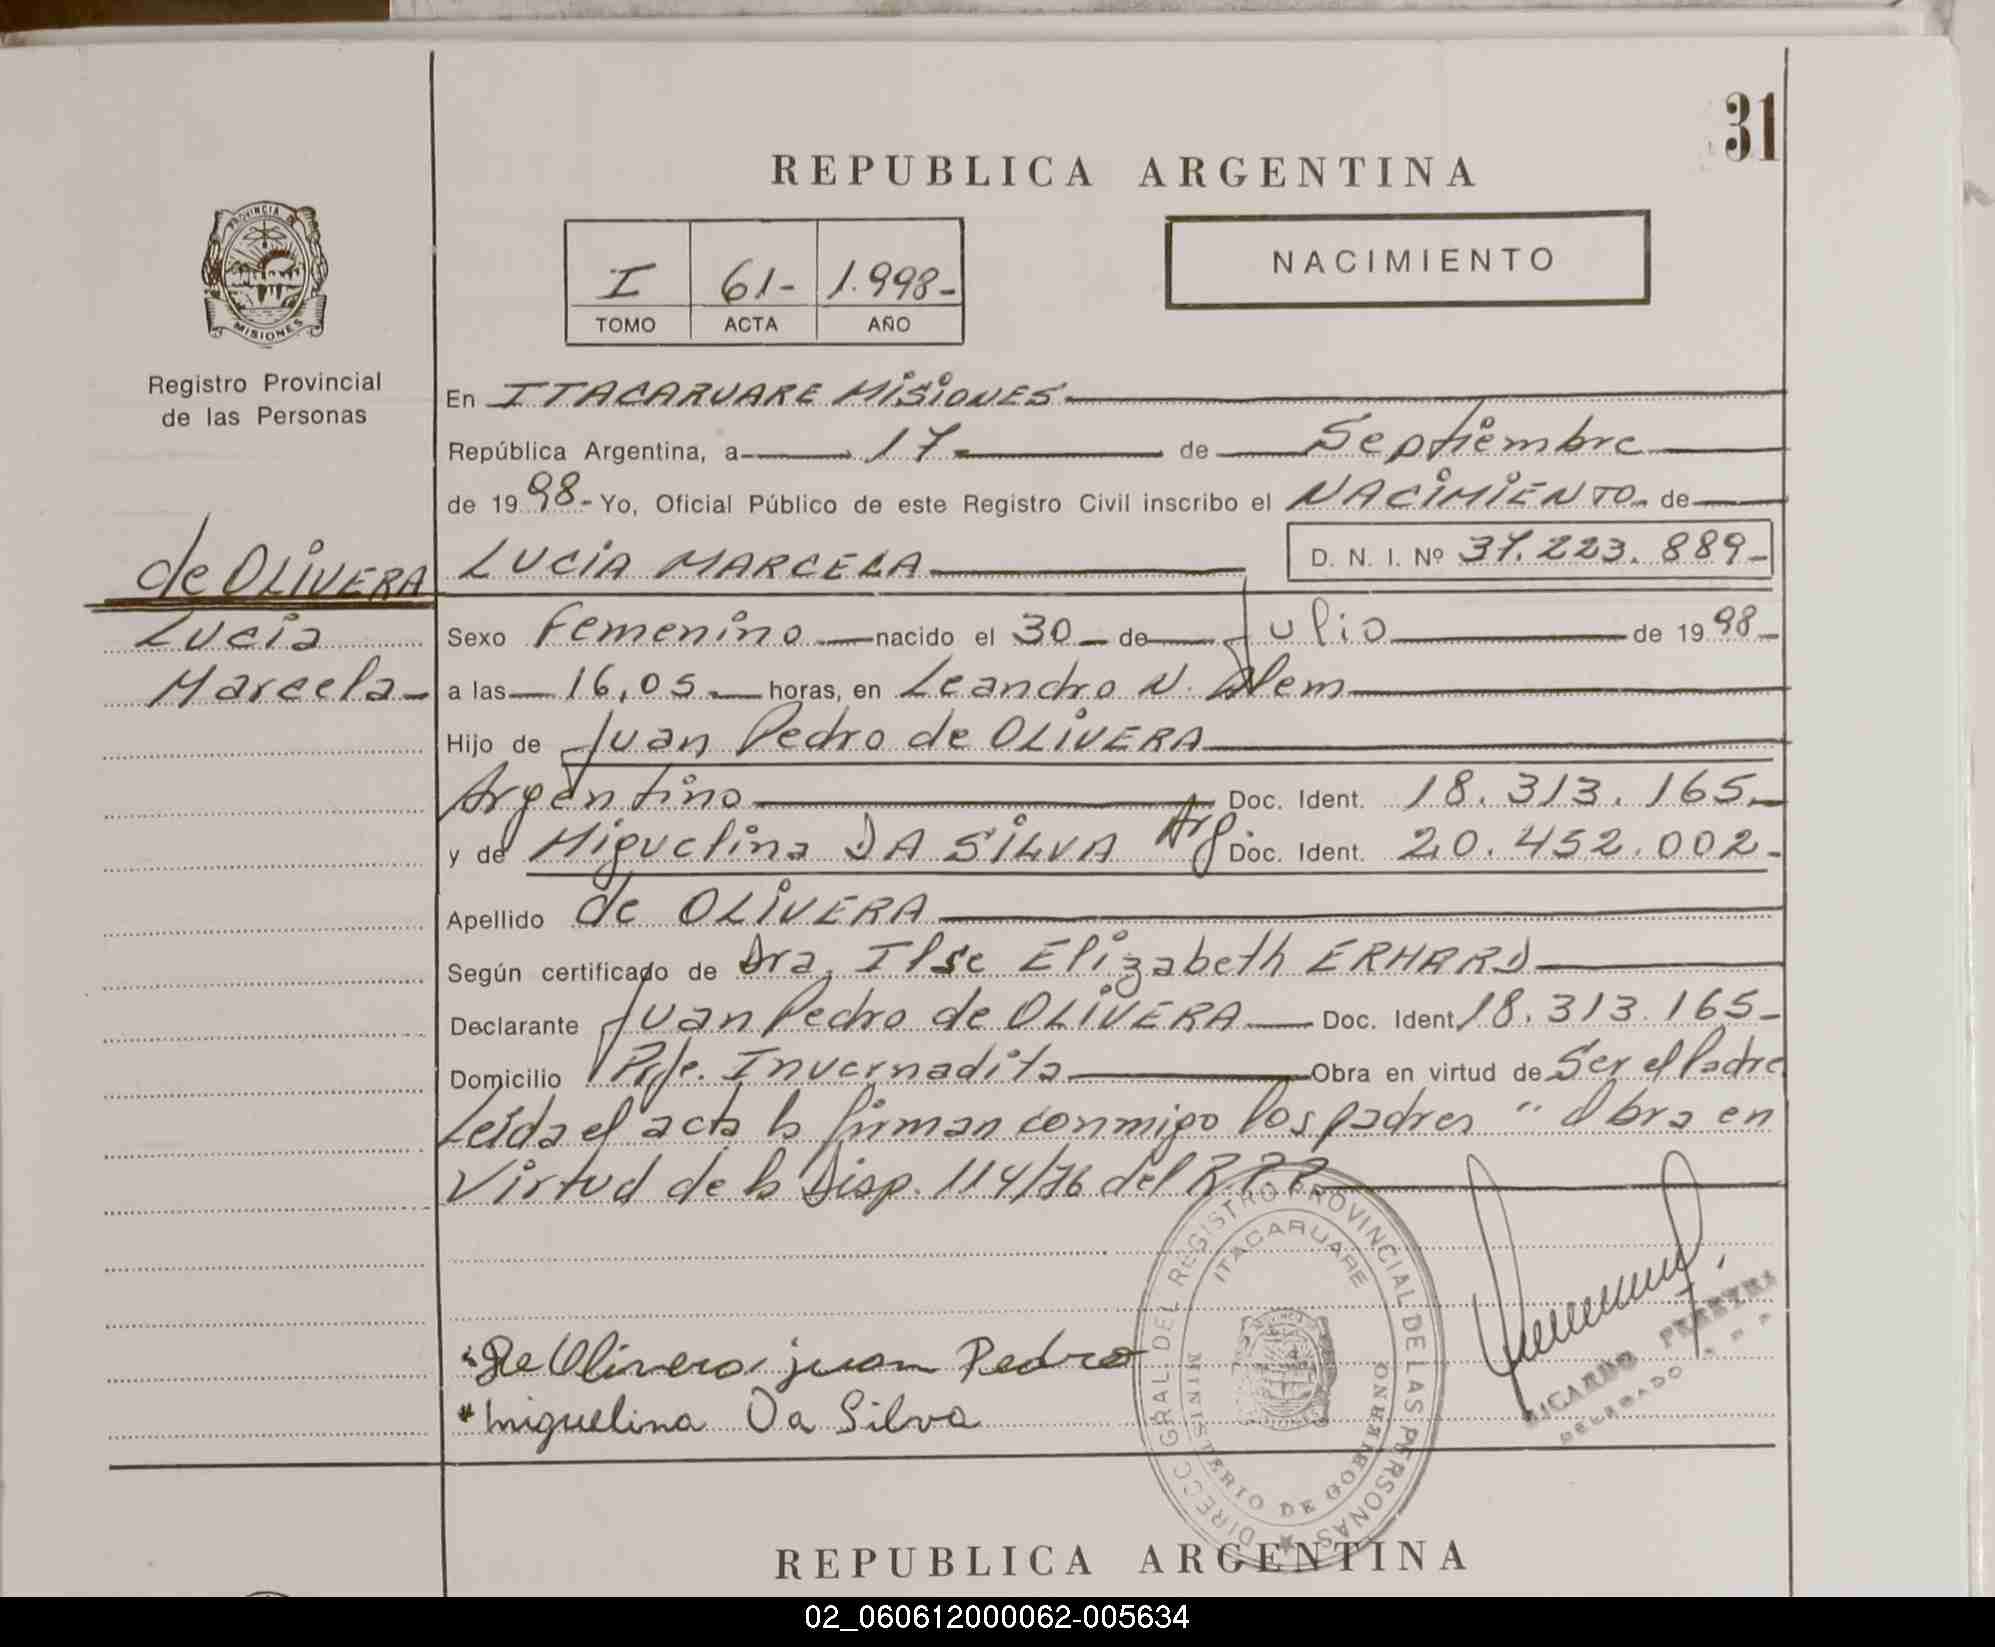 31
REPUBLICA ARGENTINA
PROVINCIA DE
MISIONES
Registro Provincial
de las Personas
I 61- 1.998-
TOMO ACTA AÑO
NACIMIENTO
En ITACARUARE MISIONES
República Argentina, a 17 de Septiembre
de 1998- Yo, Oficial Público de este Registro Civil inscribo el NACIMIENTO de
de OLIVERA LUCIA MARCELA D. N. I. Nº 37.223.889-
Lucia
Marcela
Sexo Femenino nacido el 30 de Julio de 1998
a las 16,05 horas, en Leandro N. Alem
Hijo de Juan Pedro de OLIVERA
Argentino Doc. Ident. 18.313.165
y de Miguelina DA SILVA Arg. Doc. Ident. 20.452.002
Apellido de OLIVERA
Según certificado de Dra. Ilse Elizabeth ERHARD
Declarante Juan Pedro de OLIVERA Doc. Ident. 18.313.165
Domicilio Pje. Invernadita Obra en virtud de Ser el Padre
Leída el acta la firman conmigo los padres " Obra en
Virtud de la Disp. 114/76 del R.P.P.
De Olivera juan Pedro
Miguelina Da Silva
DIRECC GRAL DEL REGISTRO PROVINCIAL DE LAS PERSONAS
ITACARUARE
MINISTERIO DE GOBIERNO
RICARDO PEREYRA
DELEGADO
REPUBLICA ARGENTINA
02_060612000062-005634